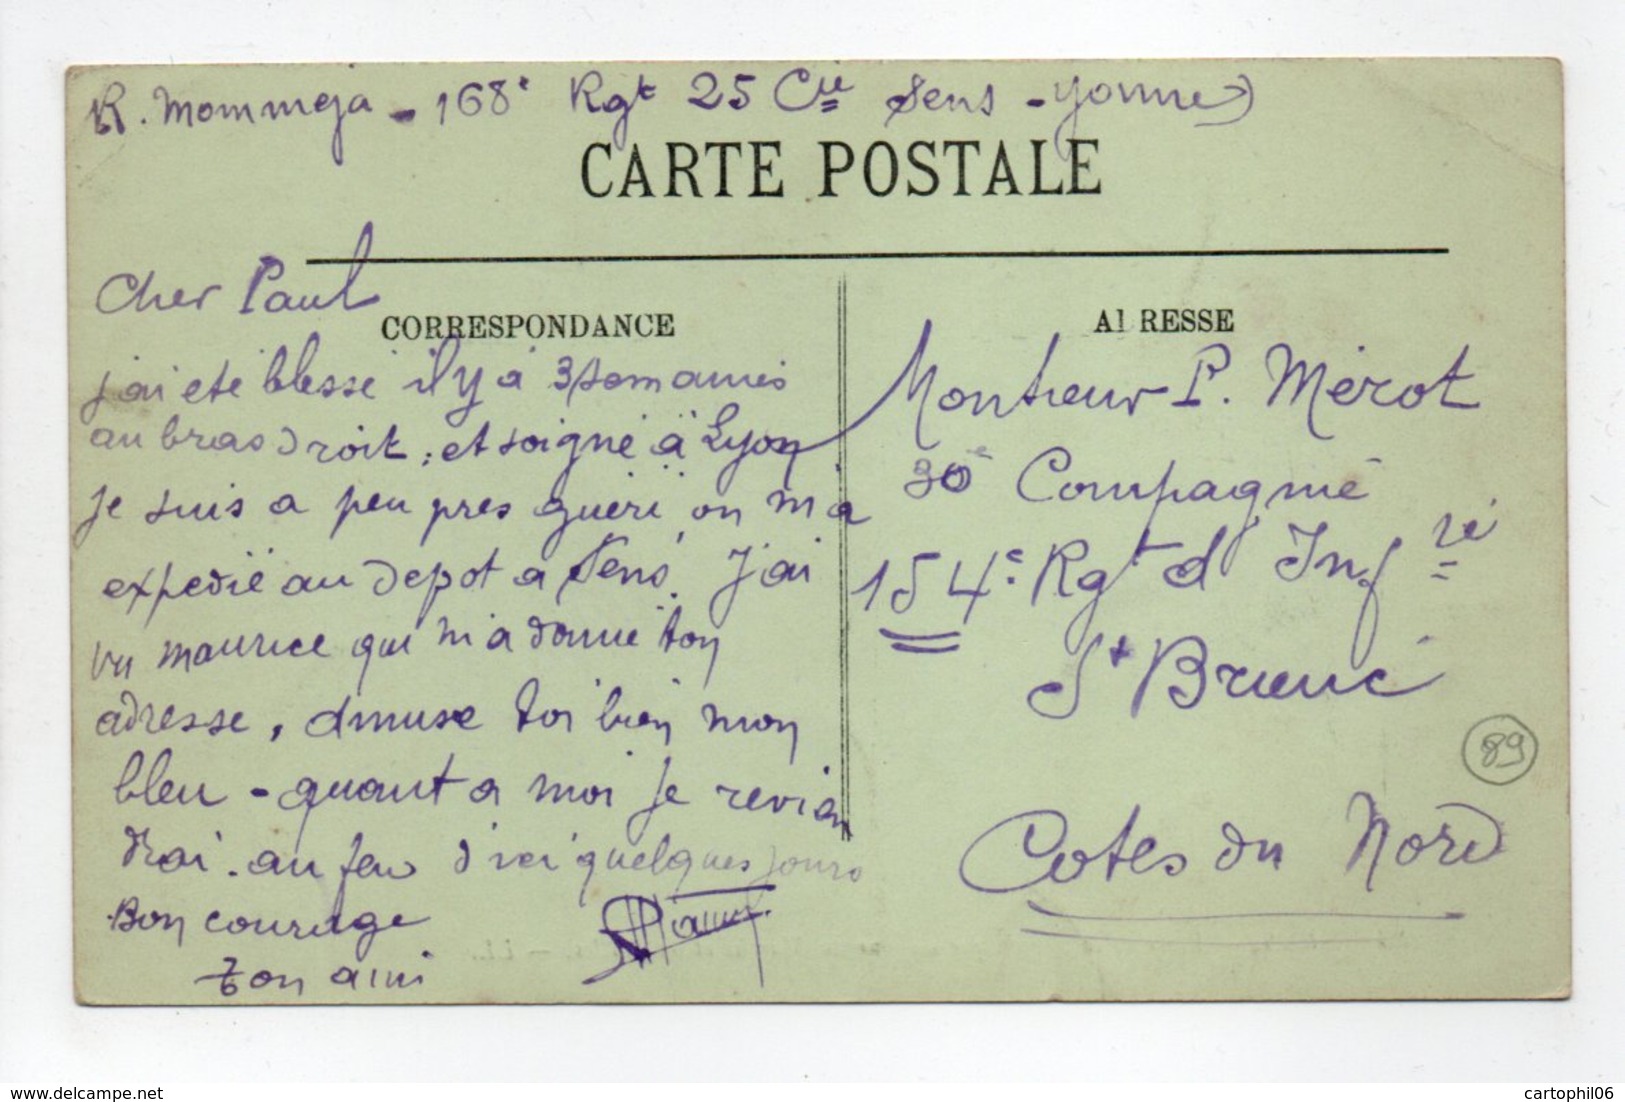 R. Mommeja - 168e Rgt 25 Cie Sens - Yonne)
CARTE POSTALE
Cher Paul
CORRESPONDANCE
j'ai eté blessé il y a 3 semaines
au bras droit, et soigné à Lyon
je suis a peu pres guéri, on m'a
expedié au depot a Sens. J'ai
vu maurice qui m'a donné ton
adresse, amuse toi bien mon
bleu - quant a moi je revien
drai au feu d'ici quelques jours
Bon courage
Ton ami
ADRESSE
Monsieur P. Mérot
30e Compagnie
154e Rgt d'Infrie
St Brieuc
Cotes du Nord
89
www.delcampe.net
cartophil06